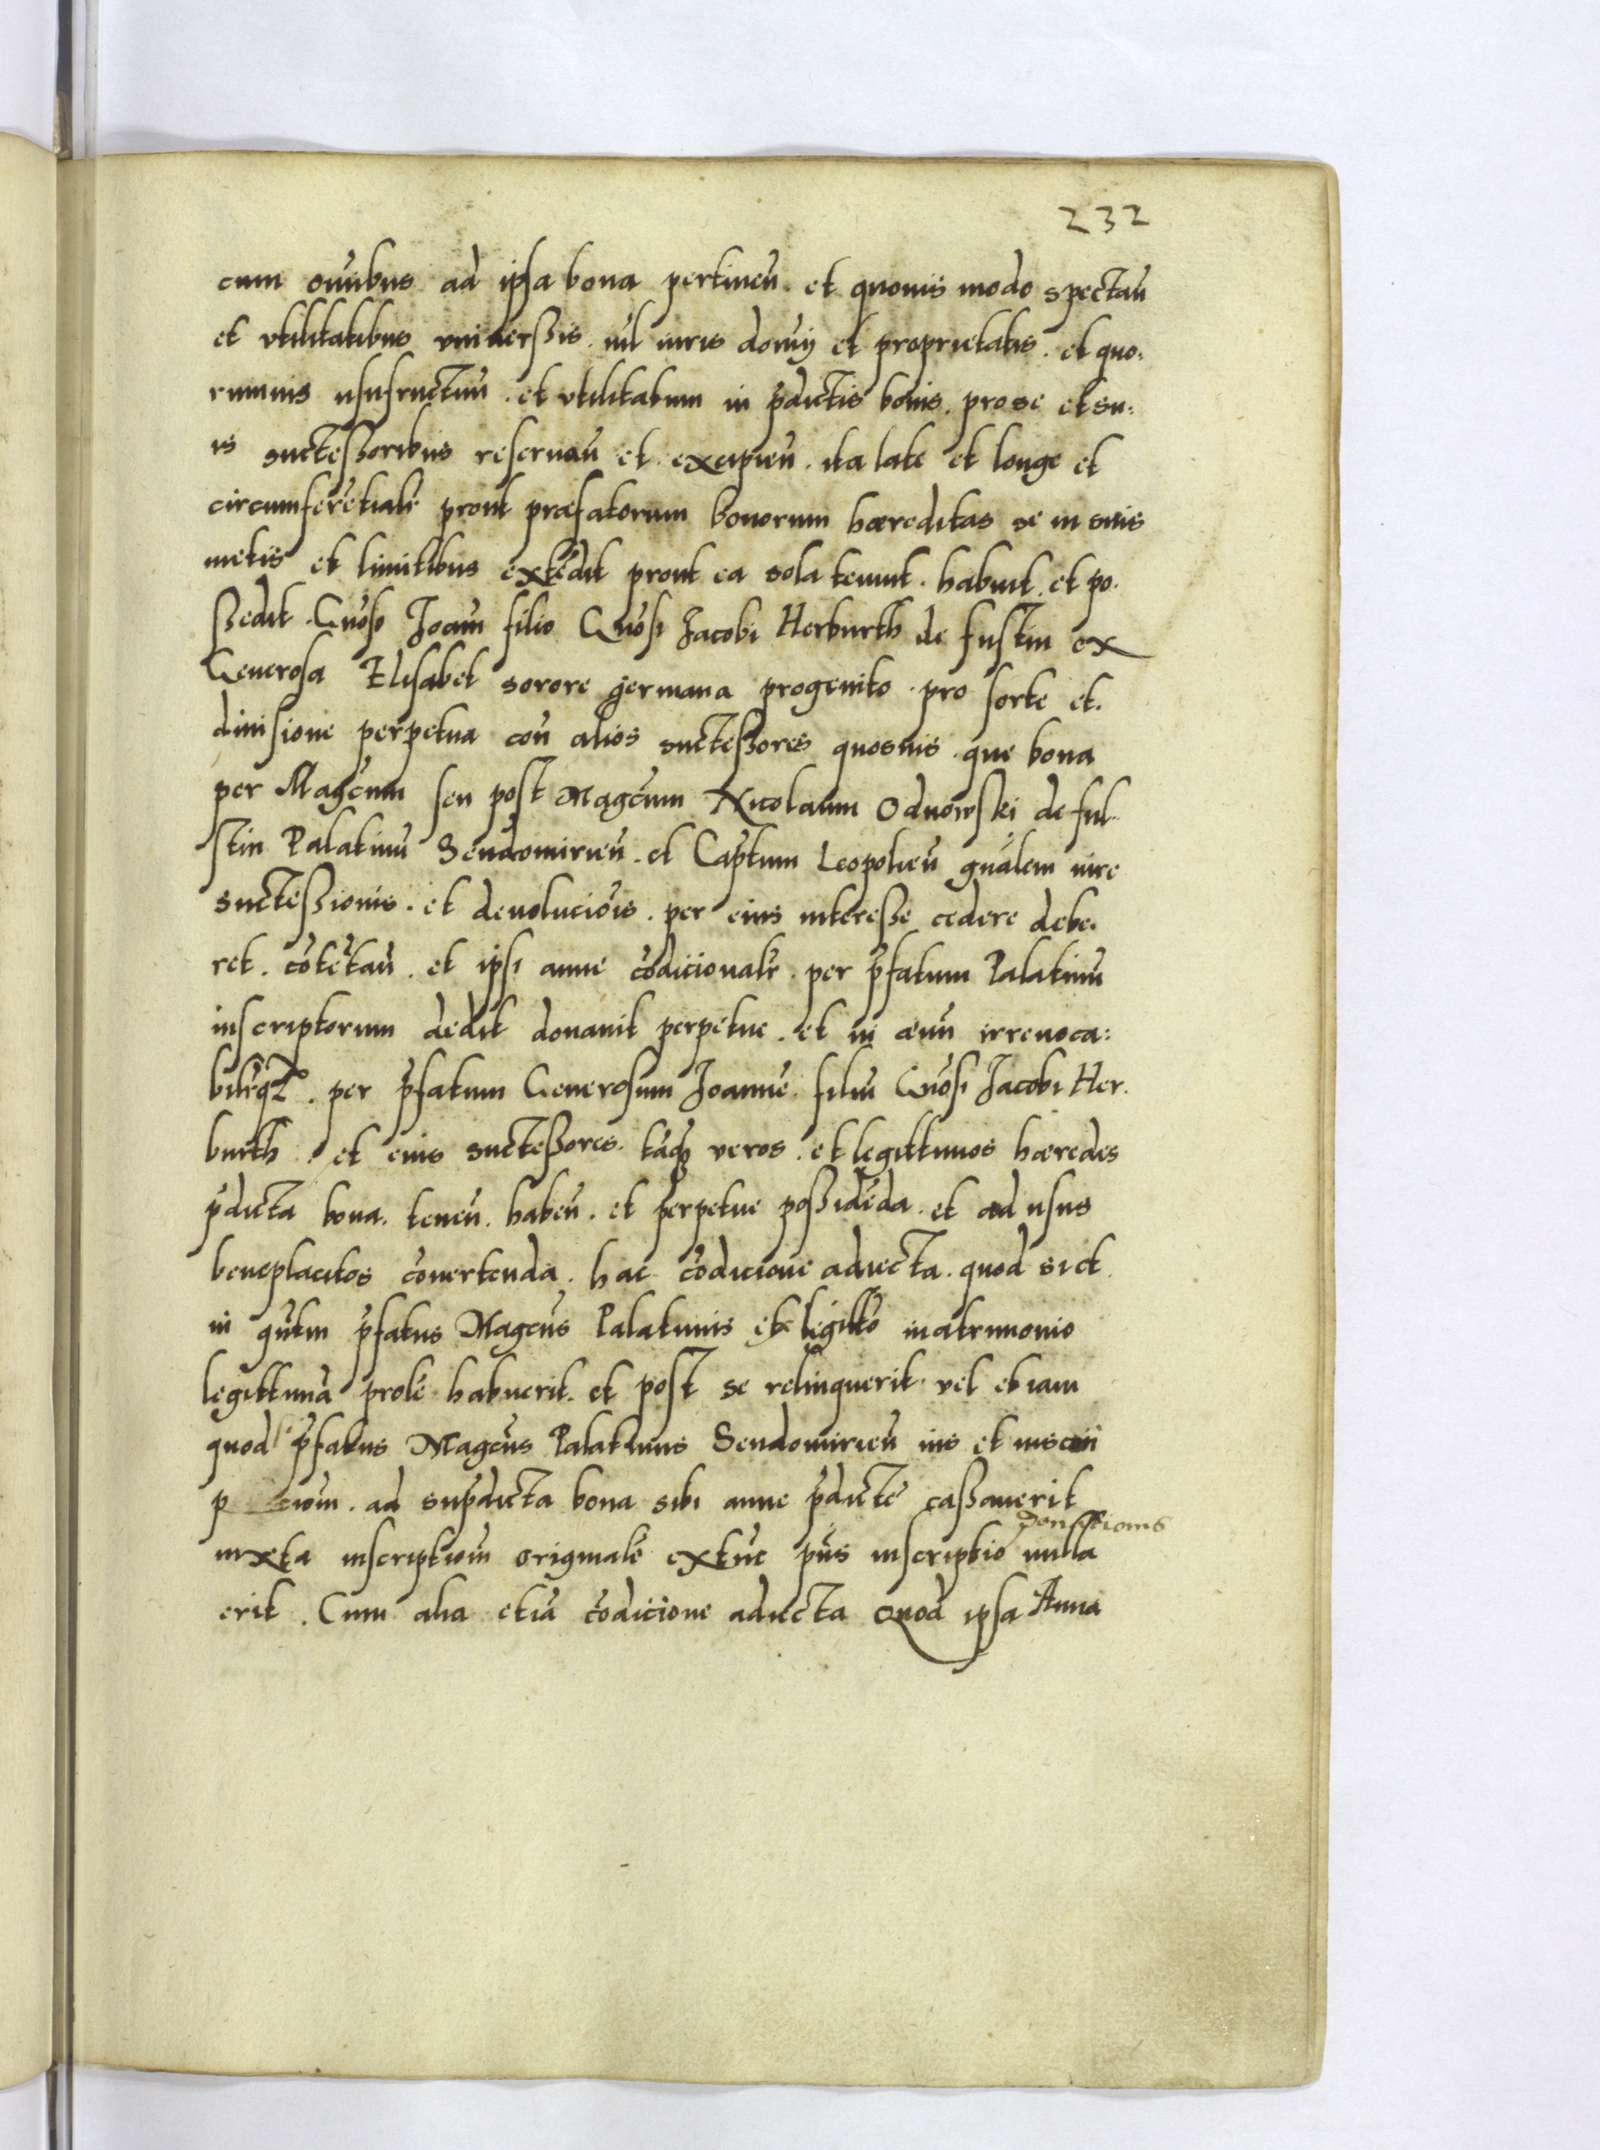 232
cum oĩbus ad ipsa bona pertineñ. et quouis modo spectañ
et vtilitatibus vniuersis. nil iuris dominij et proprietatis. et quo:
rumuis ususfructuũ. et vtilitatum in p̃dictis bonis. pro se et su:
is suctessoribus reseruañ et. excipieñ. ita late et longe et
circumferẽtialr̃ prout præfatorum bonorum hæreditas se in suis
metis et limitibus extẽdit prout ea sola tenuit. habuit. et po.
ssedit. Gñoso Joañi filio Gñosi Jacobi Herburth de fustin ex
Generosa Elisabet sorore germana progenito. pro sorte et.
diuisione perpetua coñ alios suctessores quosuis. que bona
per Magcũm seu post Magcũm Nicolaum Odnowski de ful.
stin Palatinũ Sendomirieñ. et Captũm Leopolieñ gñalem iure
suctessionis. et deuoluciõis. per eius interesse cedere debe.
ret. cõtẽtañ. et ipsi anne cõdicionalr̃. per p̃fatum Palatinũ
inscriptorum dedit donauit perpetue. et in æuũ irreuoca:
bilr̃qz. per p̃fatum Generosum Joannẽ. filiũ Gñosi Jacobi Her.
burth. et eius suctessores. tãqz veros. et legittimos hæredes
p̃dicta bona. teneñ. habeñ. et perpetue possidẽda. et ad usus
beneplacitos cõuertenda. hac cõdicione adiecta. quod si et
in q̃tm p̃fatus Magcũs Palatinus ex legitt̃o matrimonio
legittimã prolẽ habuerit. et post se relinquerit. vel etiam
quod p̃fatus Magcũs Palatinus Sendomirieñ ius et inscri
p tioñi. ad sup̃dicta bona sibi anne p̃dictẽ cassauerit
donationis
iuxta inscriptioñi originalẽ extũc pñs inscriptio nulla
erit. Cum alia etiã cõdicione adiecta Quod ipsa Anna